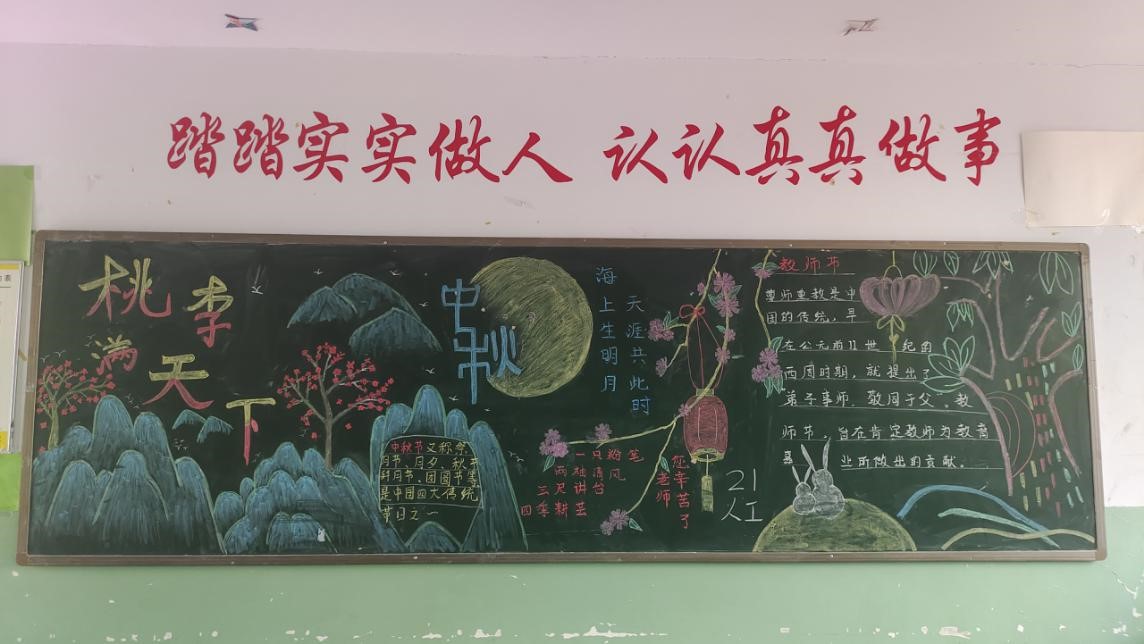 踏踏实实做人 认认真真做事
桃李
满天下
中秋
海上生明月
天涯共此时
中秋节又称祭
月节、月夕、秋节
是中国四大传统
节日之一
一只粉笔
两袖清风
三尺讲台
四季耕芸
老师
您辛苦了
21
人工
教师节
尊师重教是中
国的传统，早
在公元前11世纪的
西周时期，就提出了
弟子事师，敬同于父”，教
师节，旨在肯定教师为教育
业所做出的贡献。